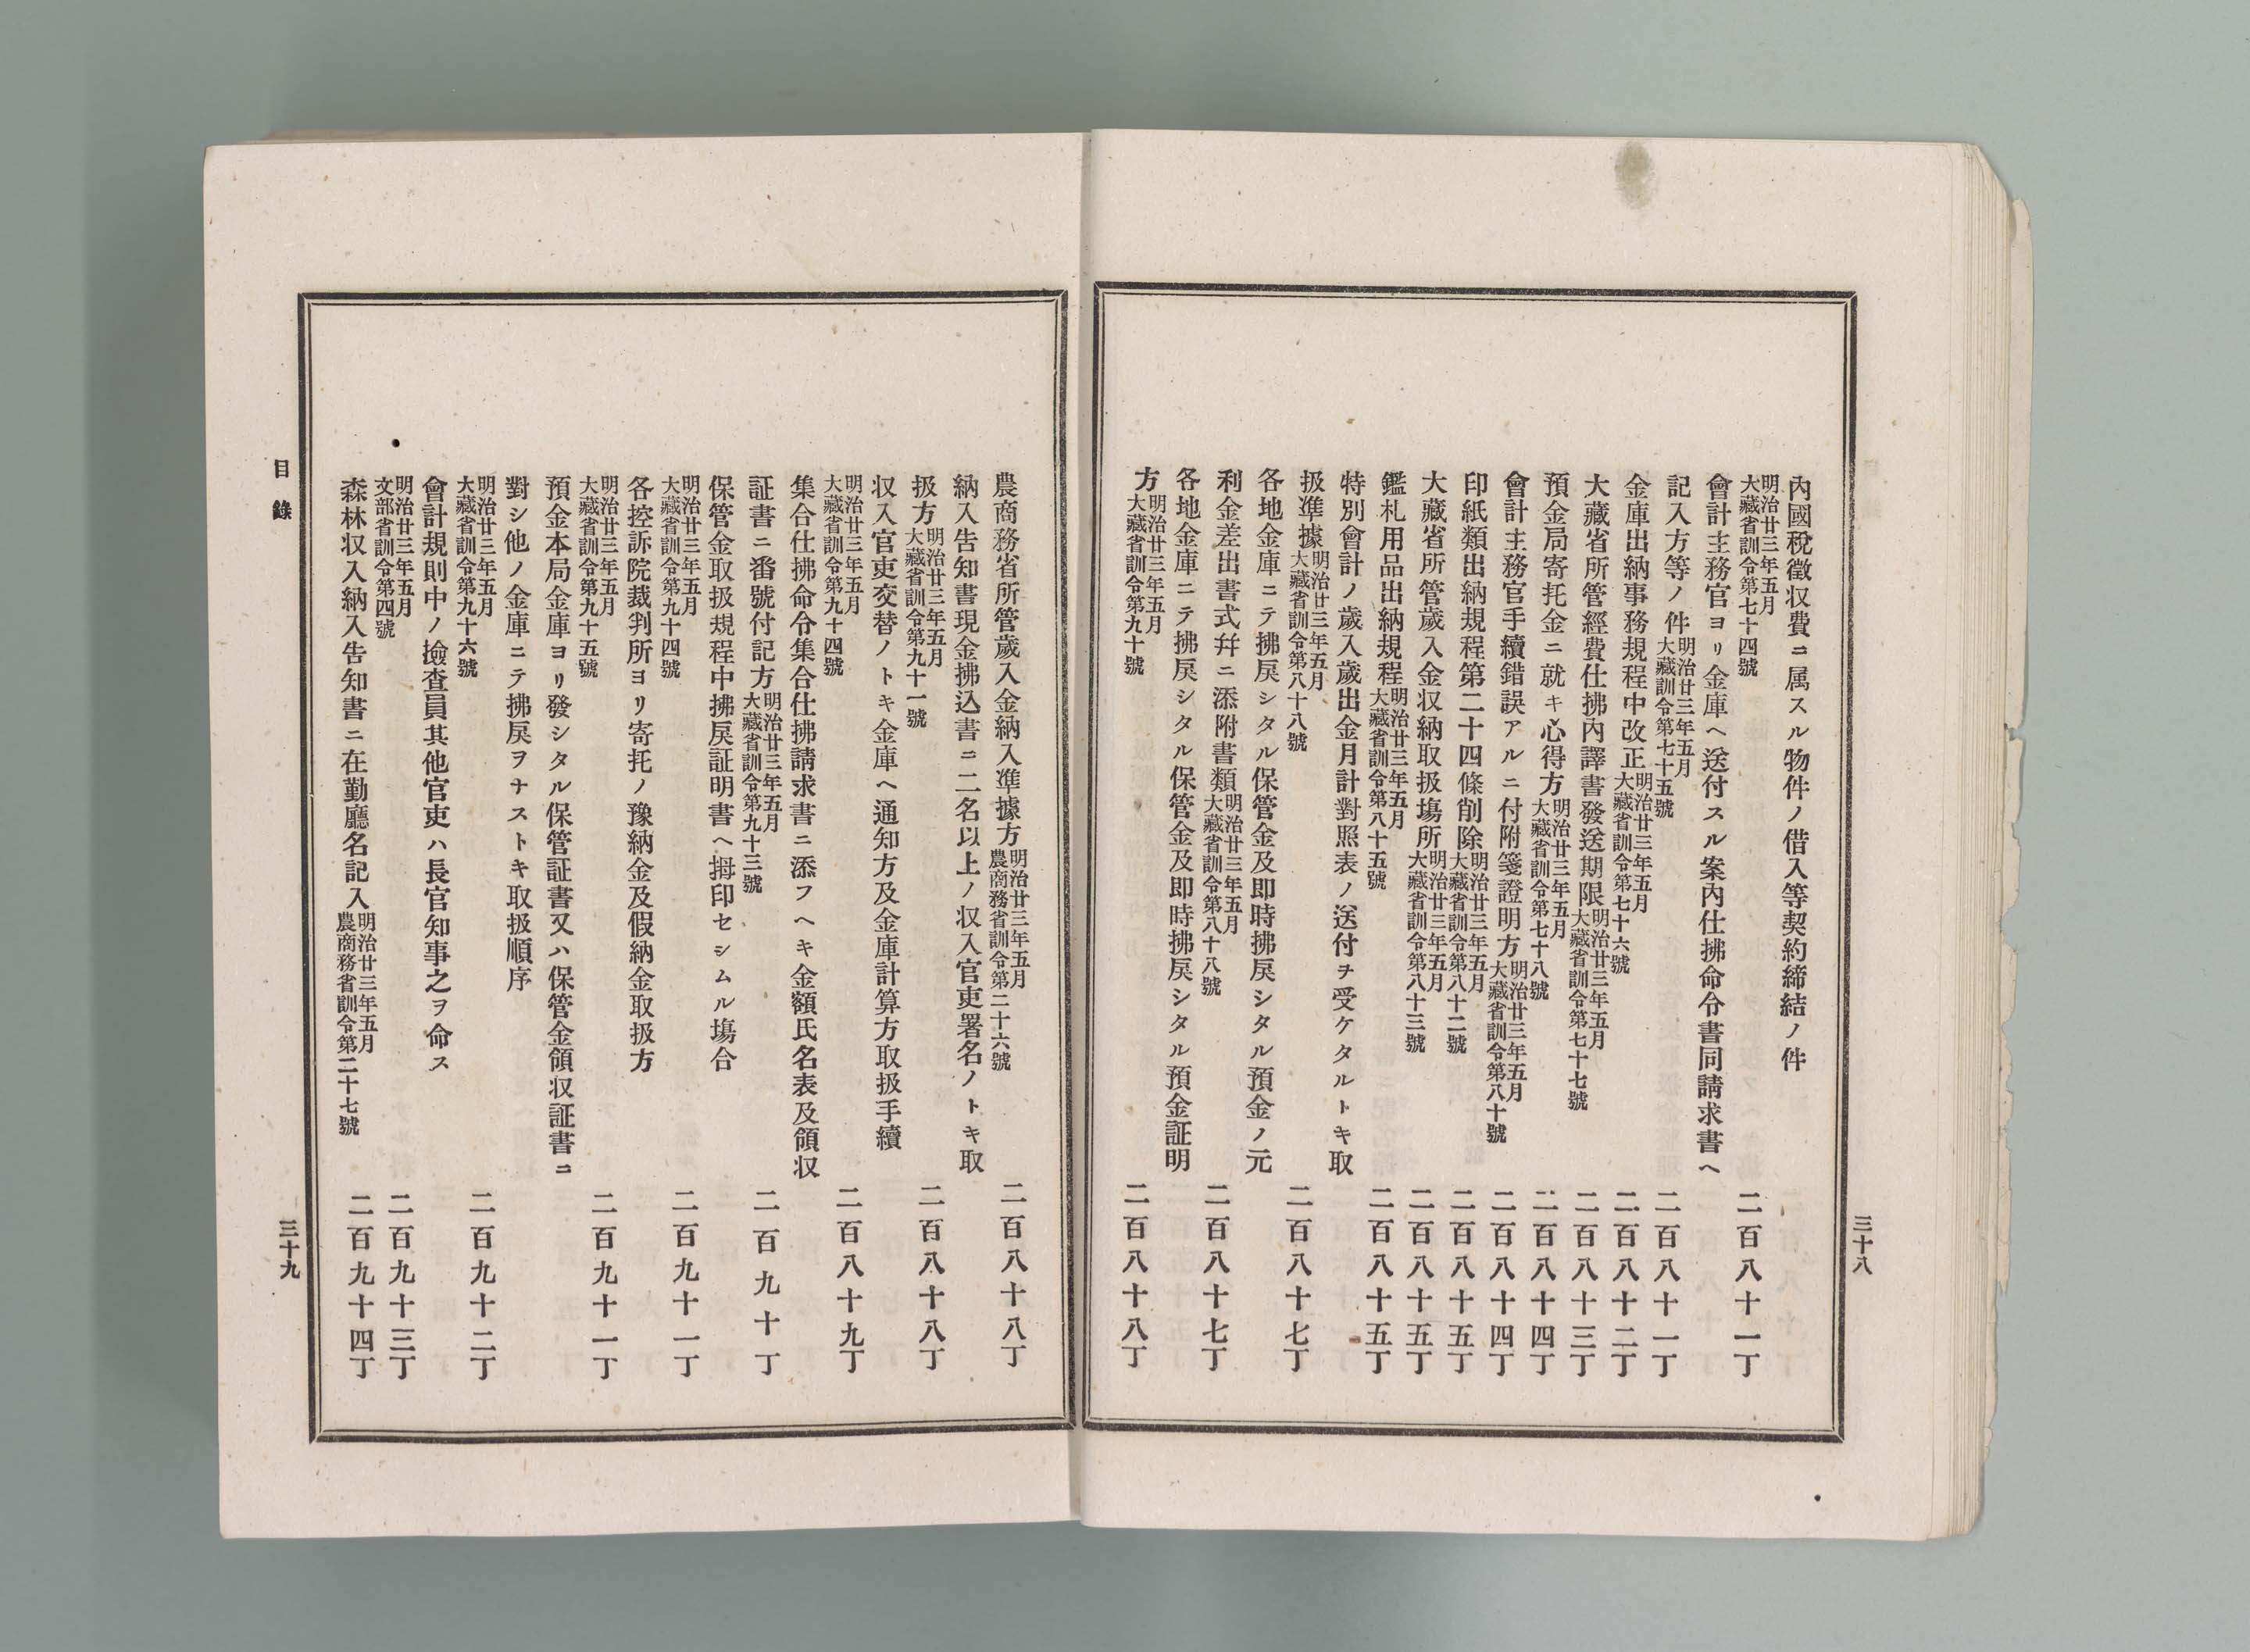 內國稅徵収費ニ属スル物件ノ借入等契約締結ノ件
明治廿三年五月
大藏省訓令第七十四號
二百八十一丁
會計主務官ヨリ金庫ヘ送付スル案內仕拂命令書同請求書ヘ
記入方等ノ件
明治廿三年五月
大藏訓令第七十五號
二百八十一丁
金庫出納事務規程中改正
明治廿三年五月
大藏省訓令第七十六號
二百八十二丁
大藏省所管經費仕拂內譯書發送期限
明治廿三年五月
大藏省訓令第七十七號
二百八十三丁
預金局寄托金ニ就キ心得方
明治廿三年五月
大藏省訓令第七十八號
二百八十四丁
會計主務官手續錯誤アルニ付附箋證明方
明治廿三年五月
大藏省訓令第八十號
二百八十四丁
印紙類出納規程第二十四條削除
明治廿三年五月
大藏省訓令第八十二號
二百八十五丁
大藏省所管歲入金収納取扱塲所
明治廿三年五月
大藏省訓令第八十三號
二百八十五丁
鑑札用品出納規程
明治廿三年五月
大藏省訓令第八十五號
二百八十五丁
特別會計ノ歲入歲出金月計對照表ノ送付ヲ受ケタルトキ取
扱準據
明治廿三年五月
大藏省訓令第八十八號
二百八十七丁
各地金庫ニテ拂戾シタル保管金及即時拂戾シタル預金ノ元
利金差出書式幷ニ添附書類
明治廿三年五月
大藏省訓令第八十八號
二百八十七丁
各地金庫ニテ拂戾シタル保管金及即時拂戾シタル預金証明
方
明治廿三年五月
大藏省訓令第九十號
二百八十八丁
三十八
農商務省所管歲入金納入準據方
明治廿三年五月
農商務省訓令第二十六號
二百八十八丁
納入告知書現金拂込書ニ二名以上ノ収入官吏署名ノトキ取
扱方
明治廿三年五月
大藏省訓令第九十一號
二百八十八丁
収入官吏交替ノトキ金庫ヘ通知方及金庫計算方取扱手續
明治廿三年五月
大藏省訓令第九十四號
二百八十九丁
集合仕拂命令集合仕拂請求書ニ添フヘキ金額氏名表及領収
証書ニ番號付記方
明治廿三年五月
大藏省訓令第九十三號
二百九十丁
保管金取扱規程中拂戾証明書ヘ拇印セシムル塲合
明治廿三年五月
大藏省訓令第九十四號
二百九十一丁
各控訴院裁判所ヨリ寄托ノ豫納金及假納金取扱方
明治廿三年五月
大藏省訓令第九十五號
二百九十一丁
預金本局金庫ヨリ發シタル保管証書又ハ保管金領収証書ニ
對シ他ノ金庫ニテ拂戾ヲナストキ取扱順序
明治廿三年五月
大藏省訓令第九十六號
二百九十二丁
會計規則中ノ撿查員其他官吏ハ長官知事之ヲ命ス
明治廿三年五月
文部省訓令第四號
二百九十三丁
森林収入納入告知書ニ在勤廳名記入
明治廿三年五月
農商務省訓令第二十七號
二百九十四丁
目錄
三十九